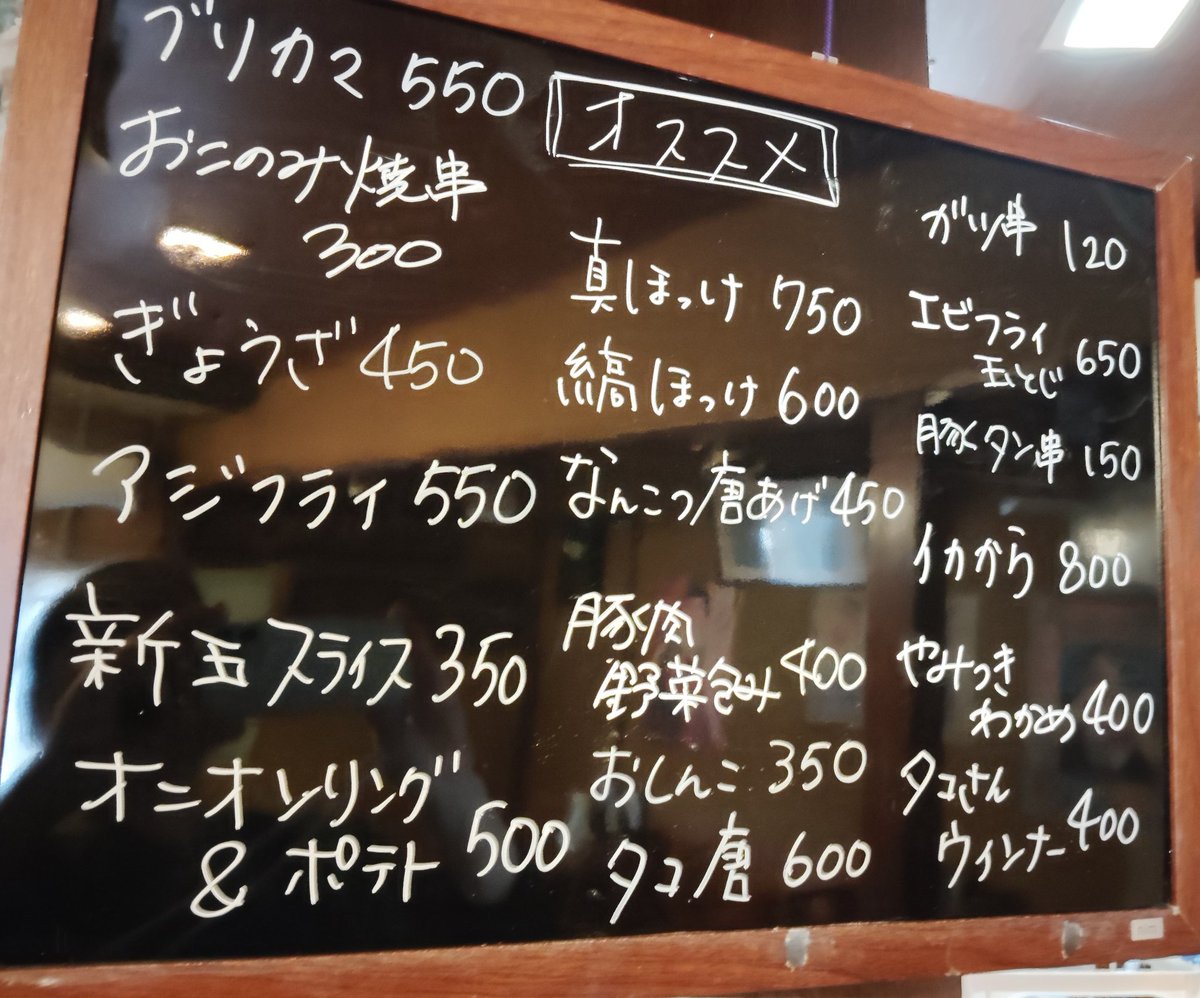 ブリカマ 550
おこのみ焼串
300
ぎょうざ 450
アジフライ 550
新玉スライス 350
オニオンリング
& ポテト 500
オススメ
真ほっけ 750
縞ほっけ 600
なんこつ唐あげ 450
豚肉
野菜包み 400
おしんこ 350
タコ唐 600
ガツ串 120
エビフライ
玉とじ 650
豚タン串 150
イカから 800
やみつき
わかめ 400
タコさん
ウインナー 400